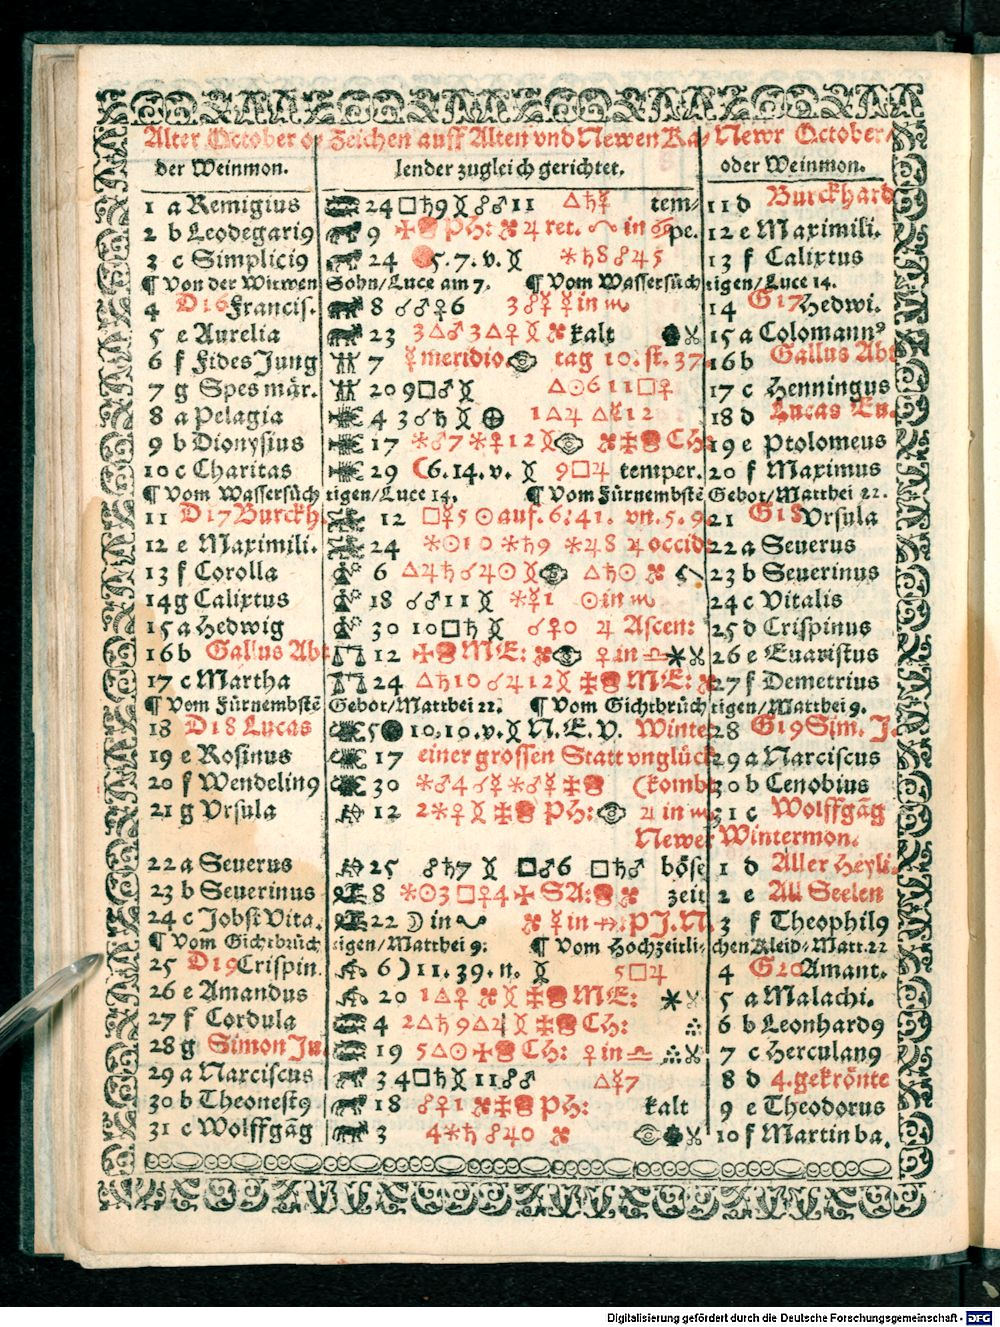 Alter October o/ Zeichen auff Alten vnd Newen Ka/ Newr October/
der Weinmon. lender zugleich gerichtet. oder Weinmon.
1 a Remigius 24 □♄9 ☍♂11 △♄☿ tem- 11 d Burckhard
2 b Leodegari9 9 PH: ♃ ret. in ♋ pe. 12 e Maximili.
3 c Simplici9 24 5.7.v. *♄8 ☍♃5 13 f Calixtus
¶ Von der Witwen Sohn/Luce am 7. ¶ Vom Wassersüchtigen/Luce 14.
4 D16 Francis. 8 ☌♂♀6 3☍☿ ☿ in ♏ 14 G17 Hedwi.
5 e Aurelia 23 3△♂ 3△♀ kalt 15 a Colomann9
6 f Fides Jung 7 ☿ meridio. tag 10. st. 37 16 b Gallus Abt
7 g Spes mär. 20 9□♂ △☉6 11□♀ 17 c Henningus
8 a Pelagia 4 3☌♄ 1△♃ △☿12 18 d Lucas Eu.
9 b Dionysius 17 *♂7 *♀12 CH: 19 e Ptolomeus
10 c Charitas 29 ☾6.14.v. 9□♃ temper. 20 f Maximus
¶ Vom Wassersüchtigen/Luce 14. ¶ Vom Fürnembstē Gebot/Matthei 22.
11 D17 Burckh. 12 □☿5 ☉ auf. 6:41. vn. 5.9. 21 G18 Vrsula
12 e Maximili. 24 *☉10 *♄9 *♃8 ♃ occid 22 a Seuerus
13 f Corolla 6 △♃♄ ☌♃☉ △♄☉ 23 b Seuerinus
14 g Calixtus 18 ☌♂11 *☿1 ☉ in ♏ 24 c Vitalis
15 a Hedwig 30 10□♄ ☌♀0 ♃ Ascen: 25 d Crispinus
16 b Gallus Abt 12 ME: ♀ in ♎ 26 e Euaristus
17 c Martha 24 △♄10 ☌♃12 ME: 27 f Demetrius
¶ Vom Fürnembstē Gebot/Matthei 22. ¶ Vom Gichtbrüchtigen/Matthei 9.
18 D18 Lucas 5 ● 10.10.v. N.E.V. Winte 28 G19 Sim. J.
19 e Rosinus 17 einer grossen Statt vnglück 29 a Narciscus
20 f Wendelin9 30 *♂4 ☌☿ *♂☿ (kombt 30 b Cenobius
21 g Vrsula 12 2*♀ PH: ♃ in ♏ 31 c Wolffgāg
Newer Wintermon.
22 a Seuerus 25 ☍♄7 □♂6 □♄♂ böse 1 d Aller Heyli.
23 b Seuerinus 8 *☉3 □♀4 SA: zeit 2 e All Seelen
24 c Jobst Vita. 22 ☽ in ☿ in ♐: PJ.N. 3 f Theophil9
¶ Vom Gichtbrüchtigen/Matthei 9. ¶ Vom Hochzeitlichen Kleid/Matt. 22
25 D19 Crispin. 6 ☽11.39.n. 5□♃ 4 G20 Amant.
26 e Amandus 20 1△♀ ME: 5 a Malachi.
27 f Cordula 4 2△♄ 9△♃ CH: 6 b Leonhard9
28 g Simon Ju. 19 5△☉ CH: ♀ in ♎ 7 c Herculan9
29 a Narciscus 3 4□♄ 11☍♂ △☿7 8 d 4.gekrönte
30 b Theonest9 18 ☍♀1 PH: kalt 9 e Theodorus
31 c Wolffgāg 3 4*♄ ☍♃0 10 f Martin ba.
Digitalisierung gefördert durch die Deutsche Forschungsgemeinschaft - DFG